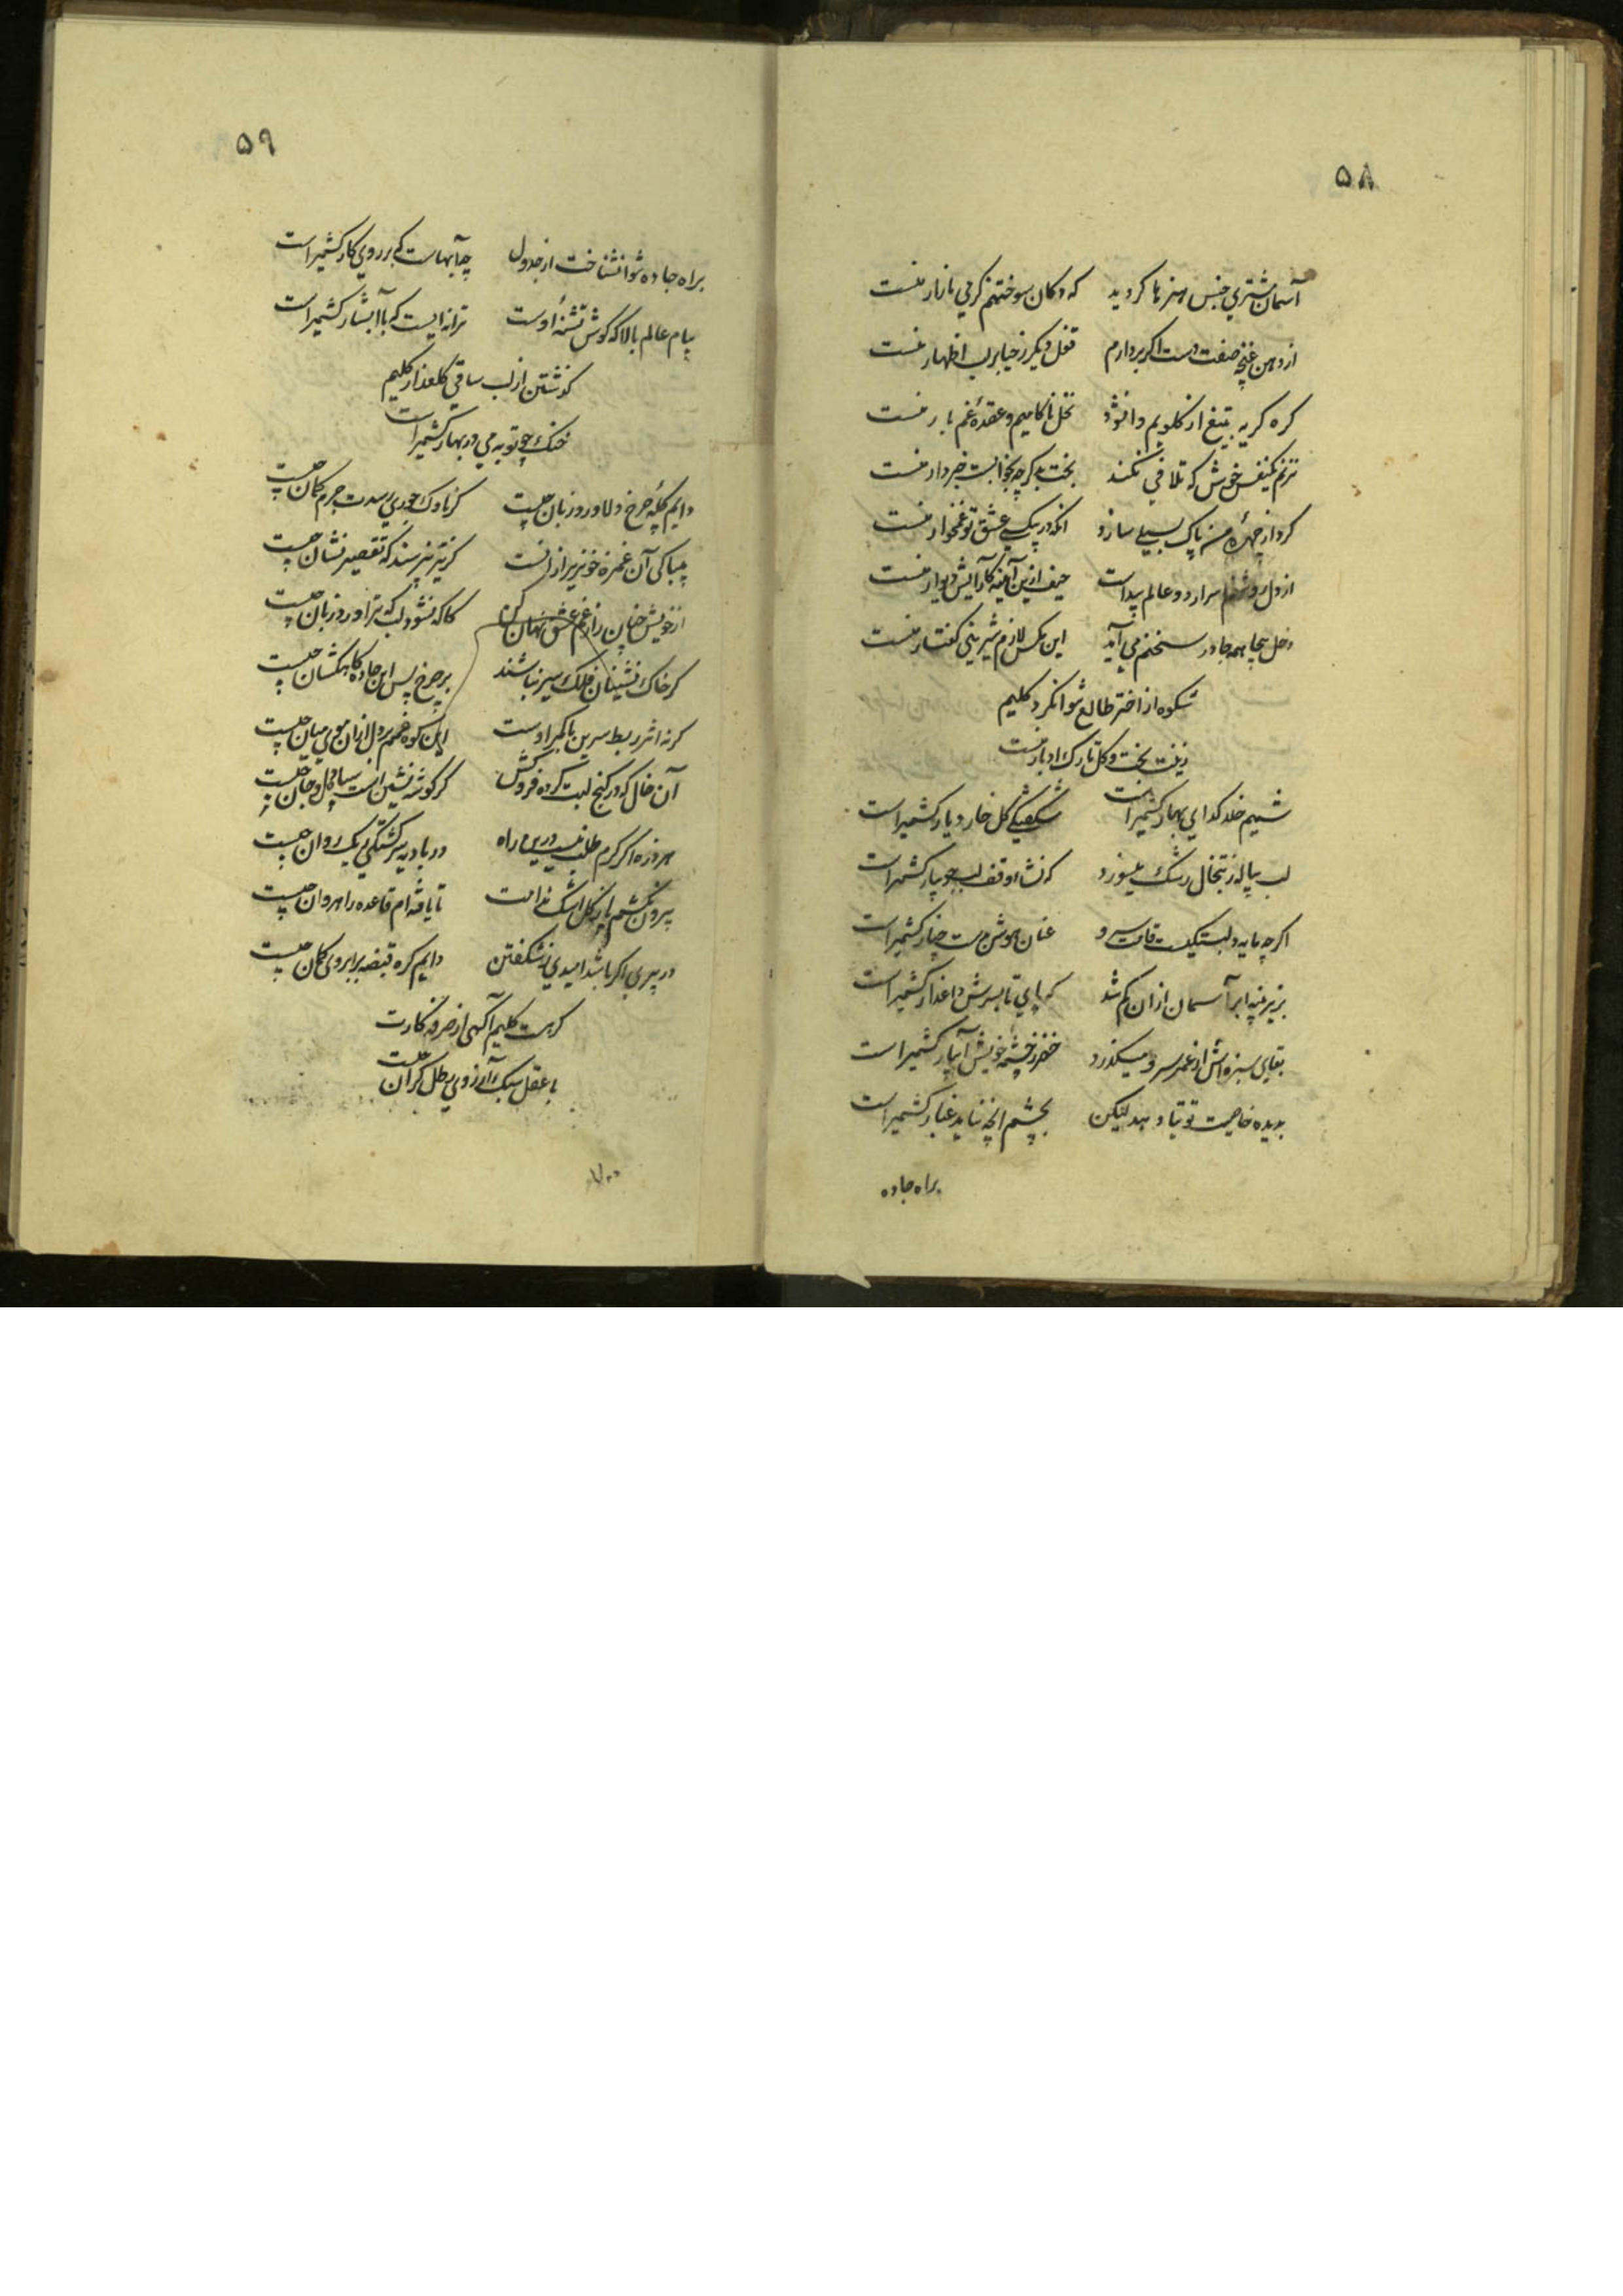 ۵۸
آسمان مشتری جنس هنرها کردید که دکان سوختنم گرمی بازار منست
از دهن غنچه صفت دست اگر بردارم قفل دیگر ز حیا بر لب اظهار منست
کره کریه بتیغ از کلویم وانشود نخل ناکامیم و عقدهٔ غم بار منست
نزنم یکنفس خوش که تلافی نکند بخت بد گرچه بخوابست خبردار منست
کرد از چهرهٔ من پاک بسیلی سازد انکه در بیکسی عشق تو غمخوار منست
از دل روشنم اسرار دو عالم پیداست حیف ازین آینه کآرایش دیوار منست
دخل بیجا همه جا در سخنم می آید این مکس لازم شیرینی گفتار منست
شکوه از اختر طالع نتوانکرد کلیم
زینت بخت و گل تارک ادبار منست
شمیم خلد کدای بهار کشمیر است شکفتگی گل خار دیار کشمیر است
لب پیاله ز تبخال رشک میسوزد که نشاه وقف لب جویبار کشمیر است
اگرچه مایه دلبستگیست قامت سرو عنان هوش بدست چنار کشمیر است
بزیر پنبه ابر آسمان ازان کم شد که پای تا بسرش داغدار کشمیر است
بقای سبزه اش از عمر سرو میگذرد خضر ز چشمهٔ خویش آبیار کشمیر است
بدیده خاصیت توتیا دهد لیکن بچشم انچه نیاید غبار کشمیر است
براه جاده
۵۹
براه جاده نتوانشناخت از جدول چه آبهاست که بر روی کار کشمیر است
پیام عالم بالا که گوش تشنهٔ اوست ترانه ایست که با آبشار کشمیر است
گذشتن از لب ساقی گلعذار کلیم
خنک چو توبه می در بهار کشمیر است
دایم گلهٔ چرخ دلا ورد زبان چیست گر ناوک جوری رسدت جرم کمان چیست
بیباکی آن غمزه خونریز ازانست کز تیر نپرسند که تقصیر نشان چیست
از خویش چنان راز غم عشق نهان کن کاکه نشود لب که ترا ورد زبان چیست
گر خاک نشینان فلک سیر نباشند بر چرخ پس این جاده کاهکشان چیست
گر نه اثر ربط سرین با کمر اوست این کوه غمم بر دل ازان موی میان چیست
آن خال که در کنج لبت کرده فروکش گر گوشه نشین است بیغمای دل و جان چیست
هر ذره اگر گرم طلب نیست درین راه در بادیه سرگشتگی ریک روان چیست
بیرون نکشم پا ز گل اشک ندامت تا یافته ام قاعده راهروان چیست
در پیری اگر باشد امیدی بشکفتن دایم گره قبضه بر ابروی کمان چیست
گر هست کلیم آگهی از صرفه کارت
با عقل سبک آرزوی رطل گران چیست